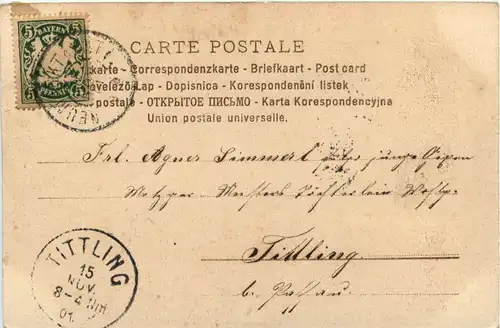 BAYERN
5 5
PFENNIG
CARTE POSTALE
karte - Correspondenzkarte - Briefkaart - Post card
Levelező-Lap - Dopisnica - Korespondenční listek
postale - ОТКРЫТОЕ ПИСЬМО - Karta Korespondencyjna
Union postale universelle.
Frl. Agnes Simmerl
Metzger Meisters Töchterlein
Tittling
b. Passau
TITTLING
15
NOV.
8-4 Nm
01.